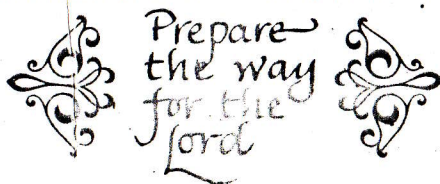 Prepare
the way
for the
Lord